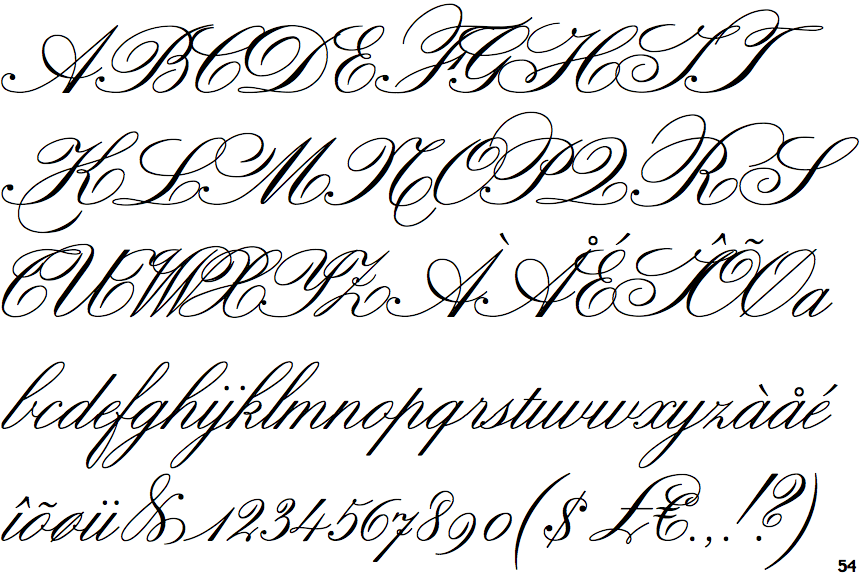 ABCDEFGHIJ
KLMNOPQRS
TUVWXYZÀÅÉÎÔÕØa
bcdefghijklmnopqrstuvwxyzàåé
îõøü&1234567890($£€.,!?)
54